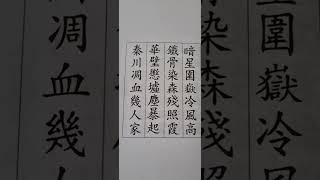 暗星圍嶽冷風高
鐵骨染森殘照霞
華壁懸墟塵暴起
秦川凋血幾人家